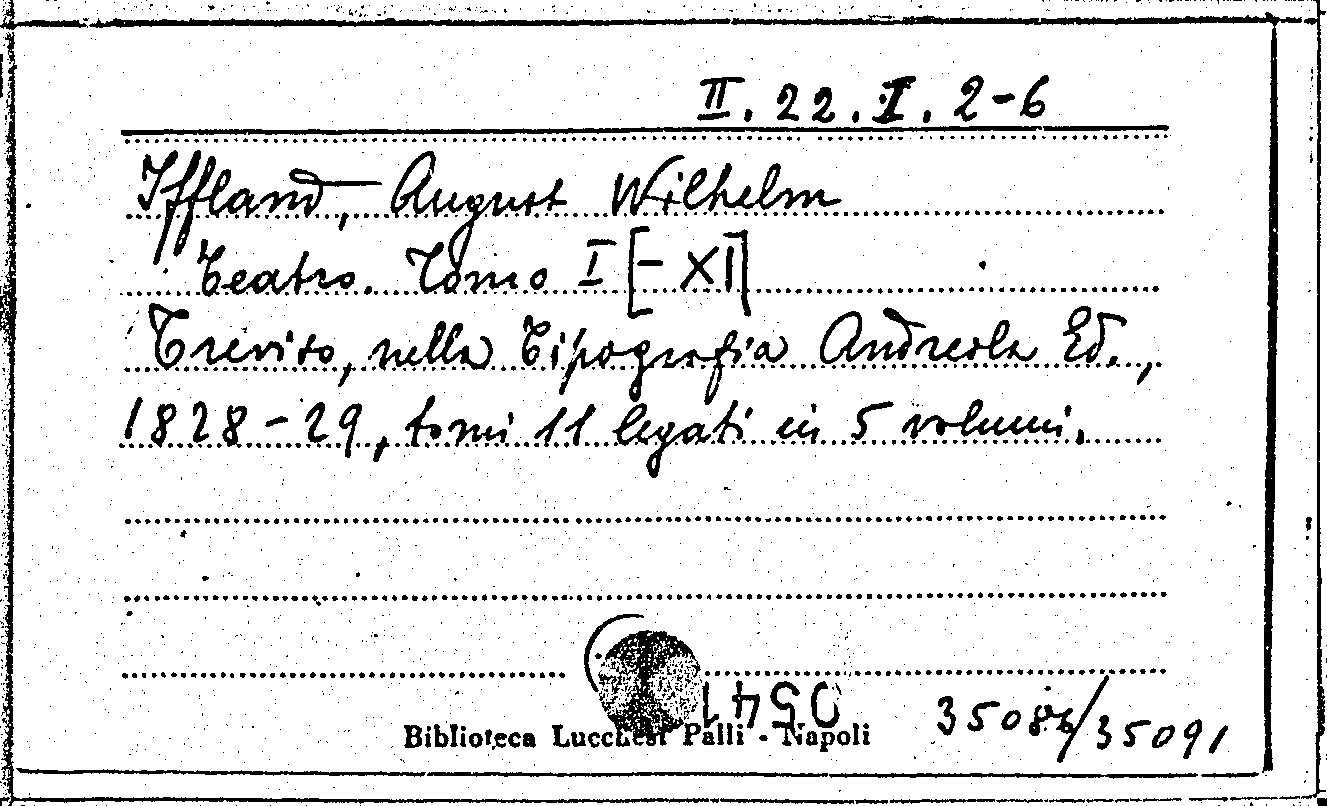 II. 22. I. 2-6
Iffland, August Wilhelm
Teatro. Tomo I [- XI]
Treviso, nella Tipografia Andreola Ed.,
1828-29, tomi 11 legati in 5 volumi.
0541
Biblioteca Lucchesi Palli - Napoli
/35091